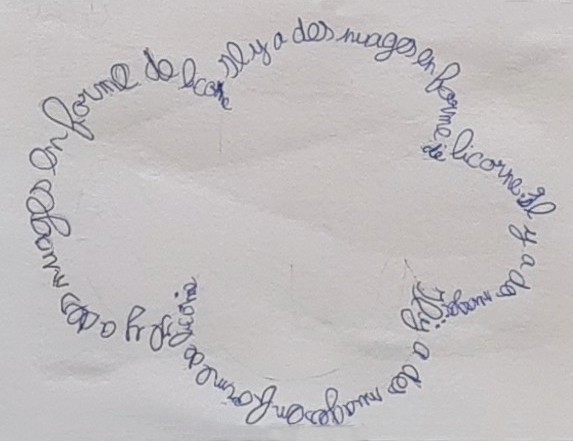 Il y a des nuages en forme de licorne. Il y a des nuages
Il y a des nuages en forme de
Il y a des nuages en forme de licorne